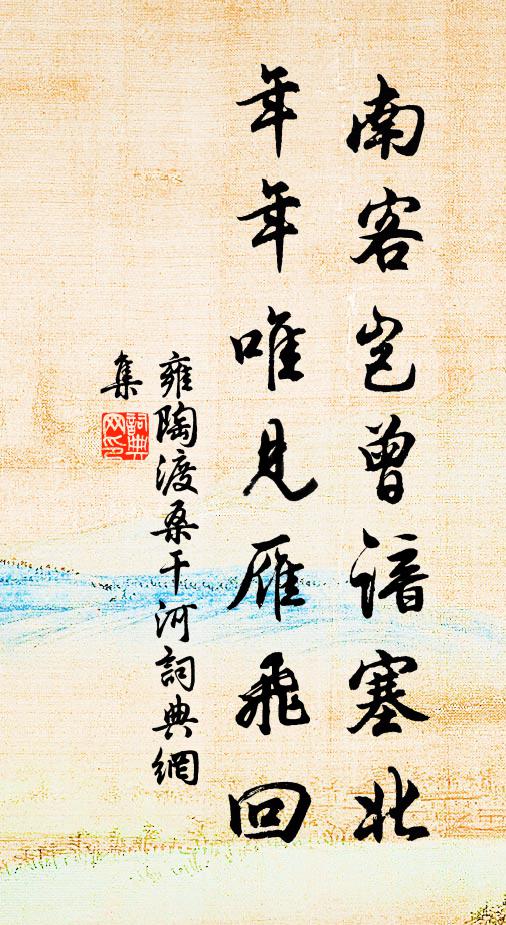 南客岂曾谙塞北
年年唯见雁飞回
雍陶渡桑干河詞典網
集
詞典
网印